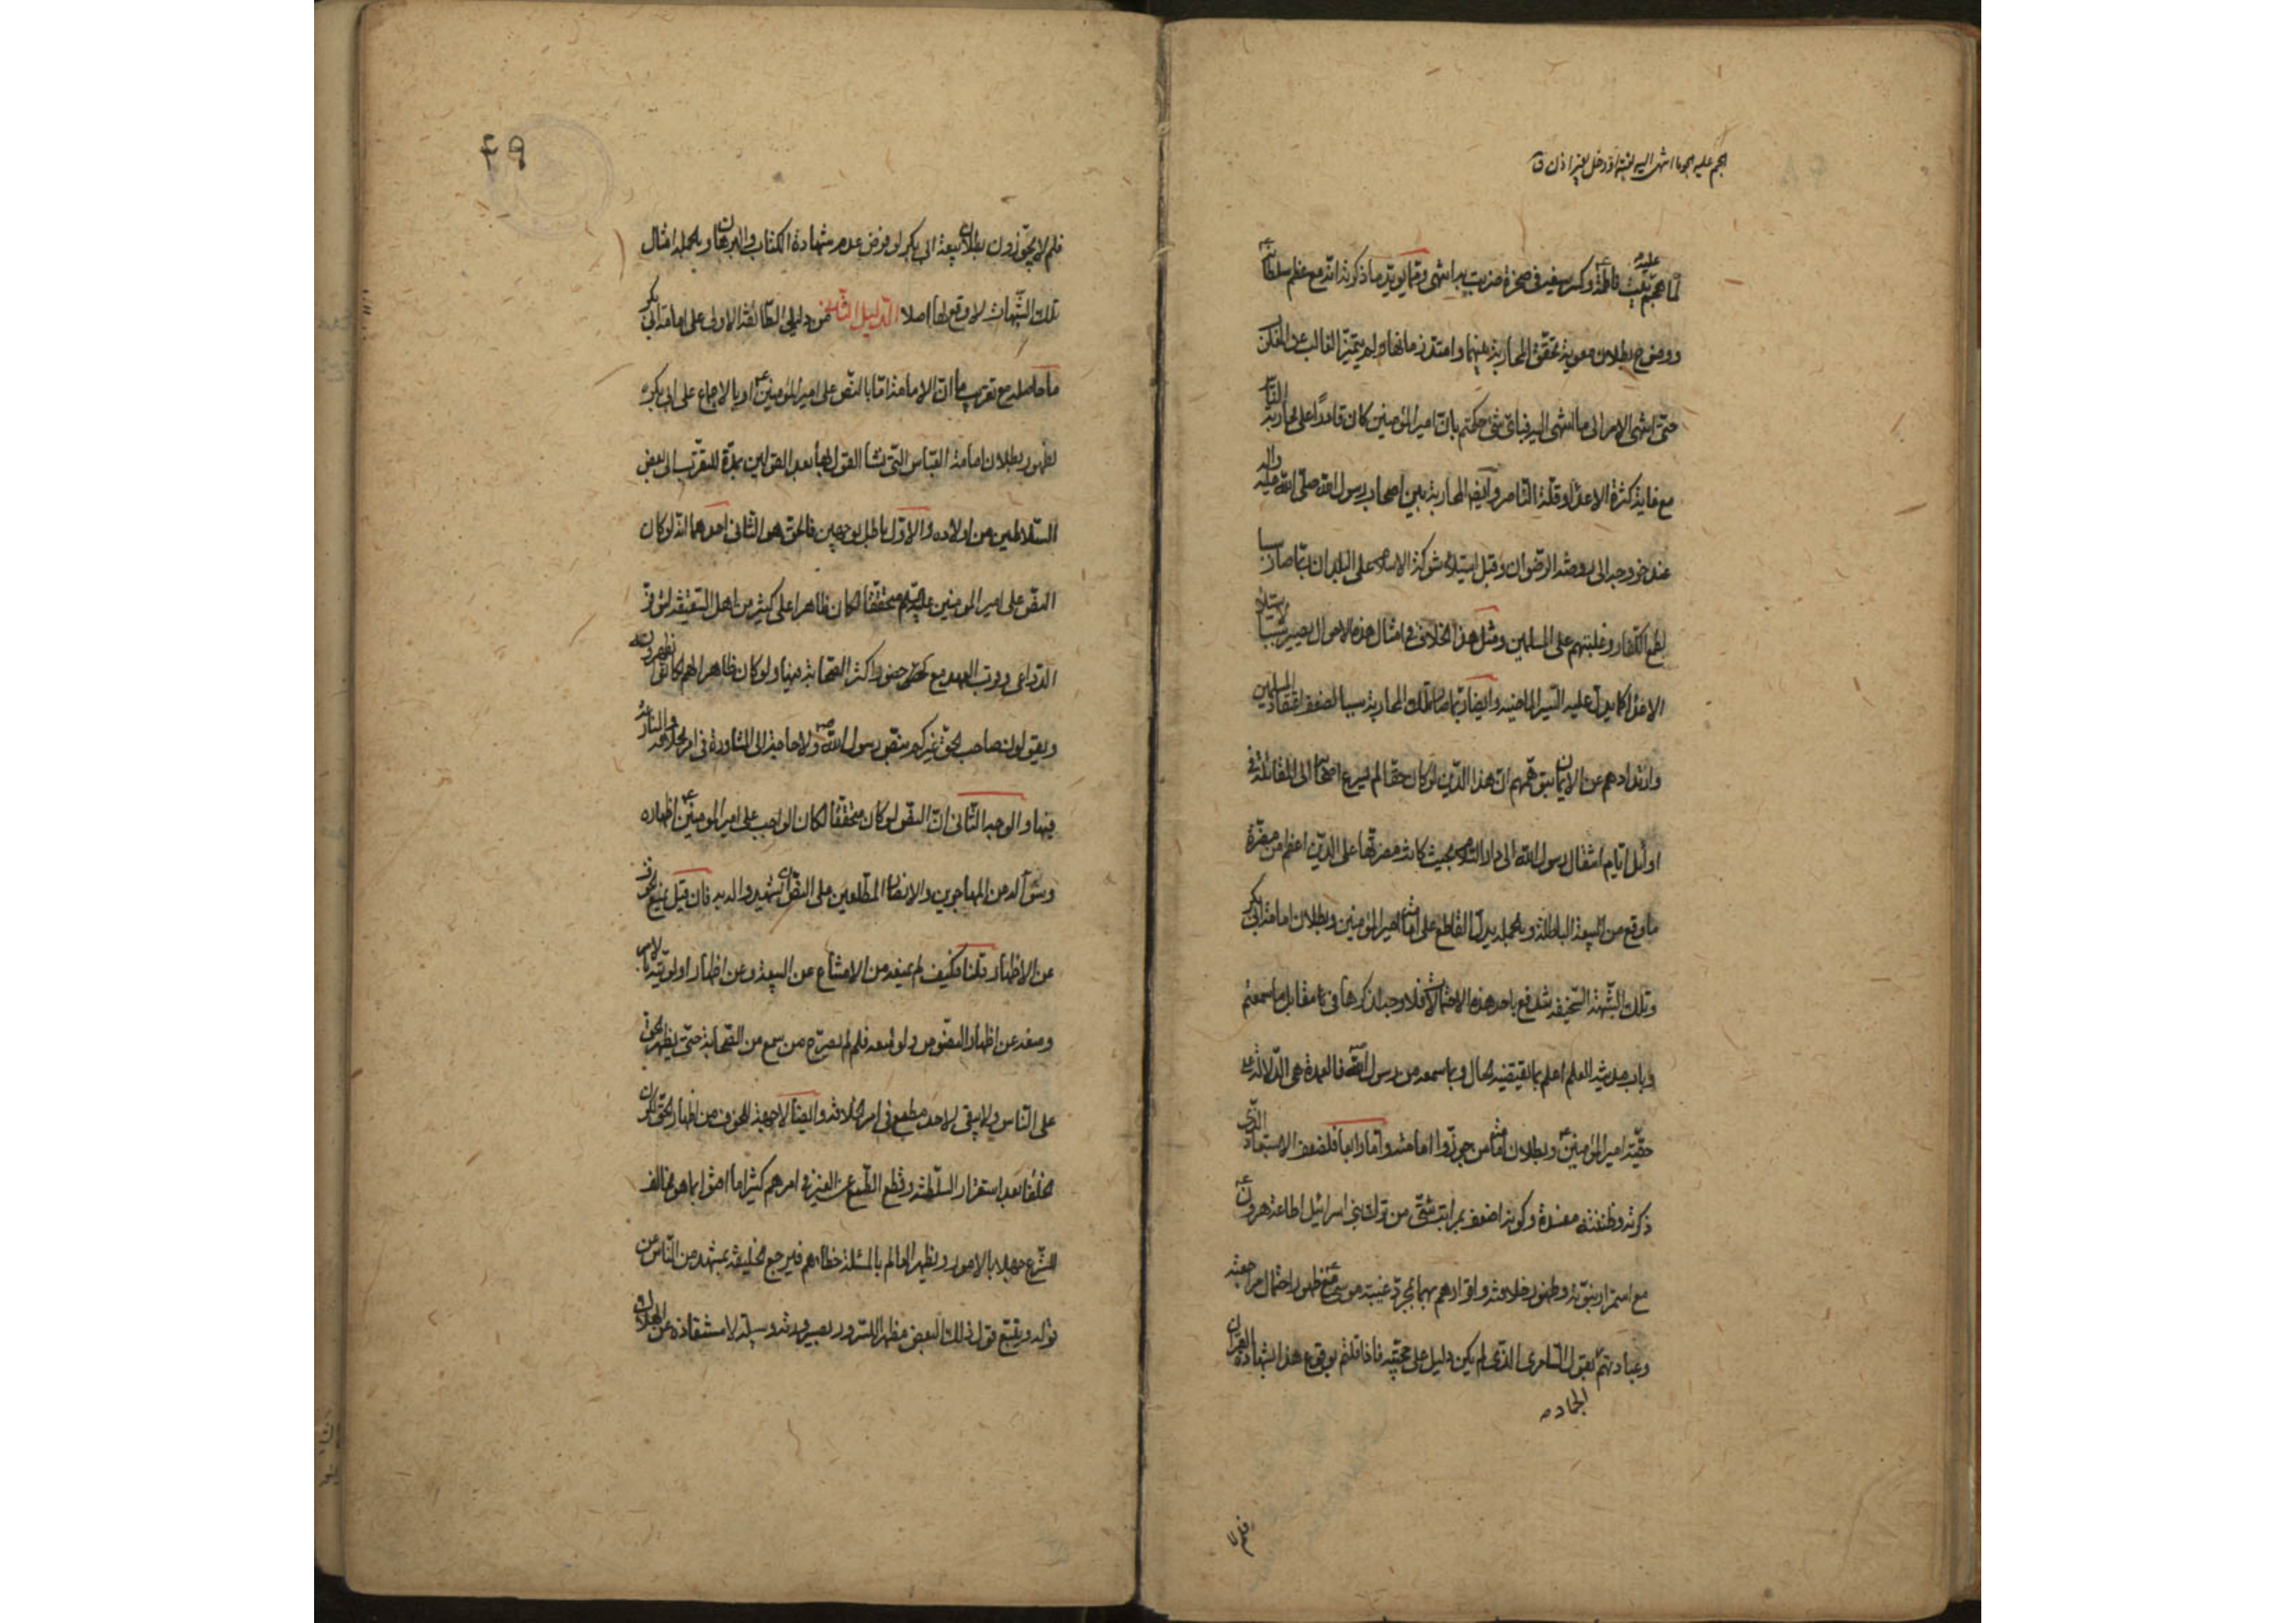 هجم عليه هجوما انتهى اليه بغتة او دخل بغير اذن ق
لما هجم عليهم بيت فاطمة ع وكسر سيفه في صخرة ضربت بها انتهى ومما يؤيد ما ذكرته انه مع عظم سلطانه ع
ووضوح بطلان معوية تحقق المحاربة بينهما وامتد زمانها ولم يتميز الغالب عن
حتى انتهى الامر الى ما انتهى اليه فباي شئ حكمتم بان امير المؤمنين كان قادرا على محاربة
مع غاية كثرة الاعداء وقلة الناصر وايضا المحاربة بين اصحاب رسول الله صلى الله عليه واله
عند خروجه الى روضة الرضوان وقبل استيلاء شوكة الاسلام على البلدان ربما صار سببا
لطمع الكفار وغلبتهم على المسلمين ومثل هذا الخلاف في امثال هذه الاحوال يصير سببا لاستيلاء
الاعداء كما يدل عليه السير الماضية وايضا ربما صار تلك المحاربة سببا لضعف اعتقاد المسلمين
وارتدادهم عن الايمان بتوهمهم ان هذا الدين لو كان حقا لم يسرع اصحابه الى المقاتلة في
اوائل ايام انتقال رسول الله الى دار السلام بحيث كانت مضرتها على الدين اعظم من مضرة
ما وقع من البيعة الباطلة وبالجملة يدل القاطع على امامة امير المؤمنين وبطلان امامة ابي بكر
وتلك الشبهة السخيفة تندفع باحد هذه الاحتمالات فلا وجه لذكرها في مقابل ما سمعتم
وباب مدينة العلم اعلم بما يقتضيه الحال وبما سمعه من رسول الله ص فالعمدة هي الدلالة على
حقية امير المؤمنين ع وبطلان امامة من جوزوا امامته واما رابعا فلضعف الاستبعاد الذي
ذكرته وظننته مفسدة وكونه اضعف بمراتب شتى من ترك بني اسرائيل اطاعة هرون ع
مع استمرار نبوته وظهور خلافته واقرارهم بهما بمجرد غيبة موسى ع مع ظهور احتمال مراجعته
وعبادتهم بقول السامري الذي لم يكن دليل على حجيته فاذا قلتم بوقوع هذا بشهادة القران
فلم لا
فلم لا يجوزون بطلان بيعة ابي بكر لو فرض عدم شهادة الكتاب والبرهان وبالجملة امثال
تلك الشبهات لا وقع لها اصلا الدليل الثاني من دليلي الطائفة الاولى على امامة ابي بكر
ما حاصله مع تقريب ما ان الامامة اما بالنص على امير المؤمنين ع او بالاجماع على ابي بكر
لظهور بطلان امامة العباس التي نشا القول بها بعد القولين بمدة للتقرب الى بعض
السلاطين من اولاده والاول باطل بوجهين فالحق هو الثاني احدهما انه لو كان
النص على امير المؤمنين عليه السلام متحققا لكان ظاهرا على كثير من اهل السقيفة لتوفر
الدواعي وقرب العهد مع حضور اكثر الصحابة فيها ولو كان ظاهرا لهم لكانوا يظهرونه
ويقولون صاحب الحق غيركم بنص رسول الله ص ولا حاجة الى المشاورة في امر الخلافة والتنازع
فيها والوجه الثاني ان النص لو كان متحققا لكان الواجب على امير المؤمنين ع اظهاره
وسؤاله من المهاجرين والانصار المطلعين على النص ان يشهدوا له به فان قيل منع الخوف
عن الاظهار قلنا فكيف لم يمنعه من الامتناع عن البيعة وعن اظهار اولويته بالامر
ومنعه عن اظهار النصوص ولو منعه فلم لم يصرح من سمع من الصحابة حتى يظهر الحق
على الناس ولا يبقى لاحد مطمع في امر الخلافة وايضا لا جهة للخوف من اظهار الحق لكون
الخلفا بعد استقرار السلطنة وقطع الطمع عن الغير في امرهم كثيرا ما افتوا بما هو مخالف
الشرع جهلا بالامور ويظهر العالم بالمسئلة خطائهم فيرجع الخليفة بمشهد من الناس عن
قوله ويتبع قول ذلك البعض مظهرا للسرور بصيرورته وسيلة لاستنقاذه عن الهلاك